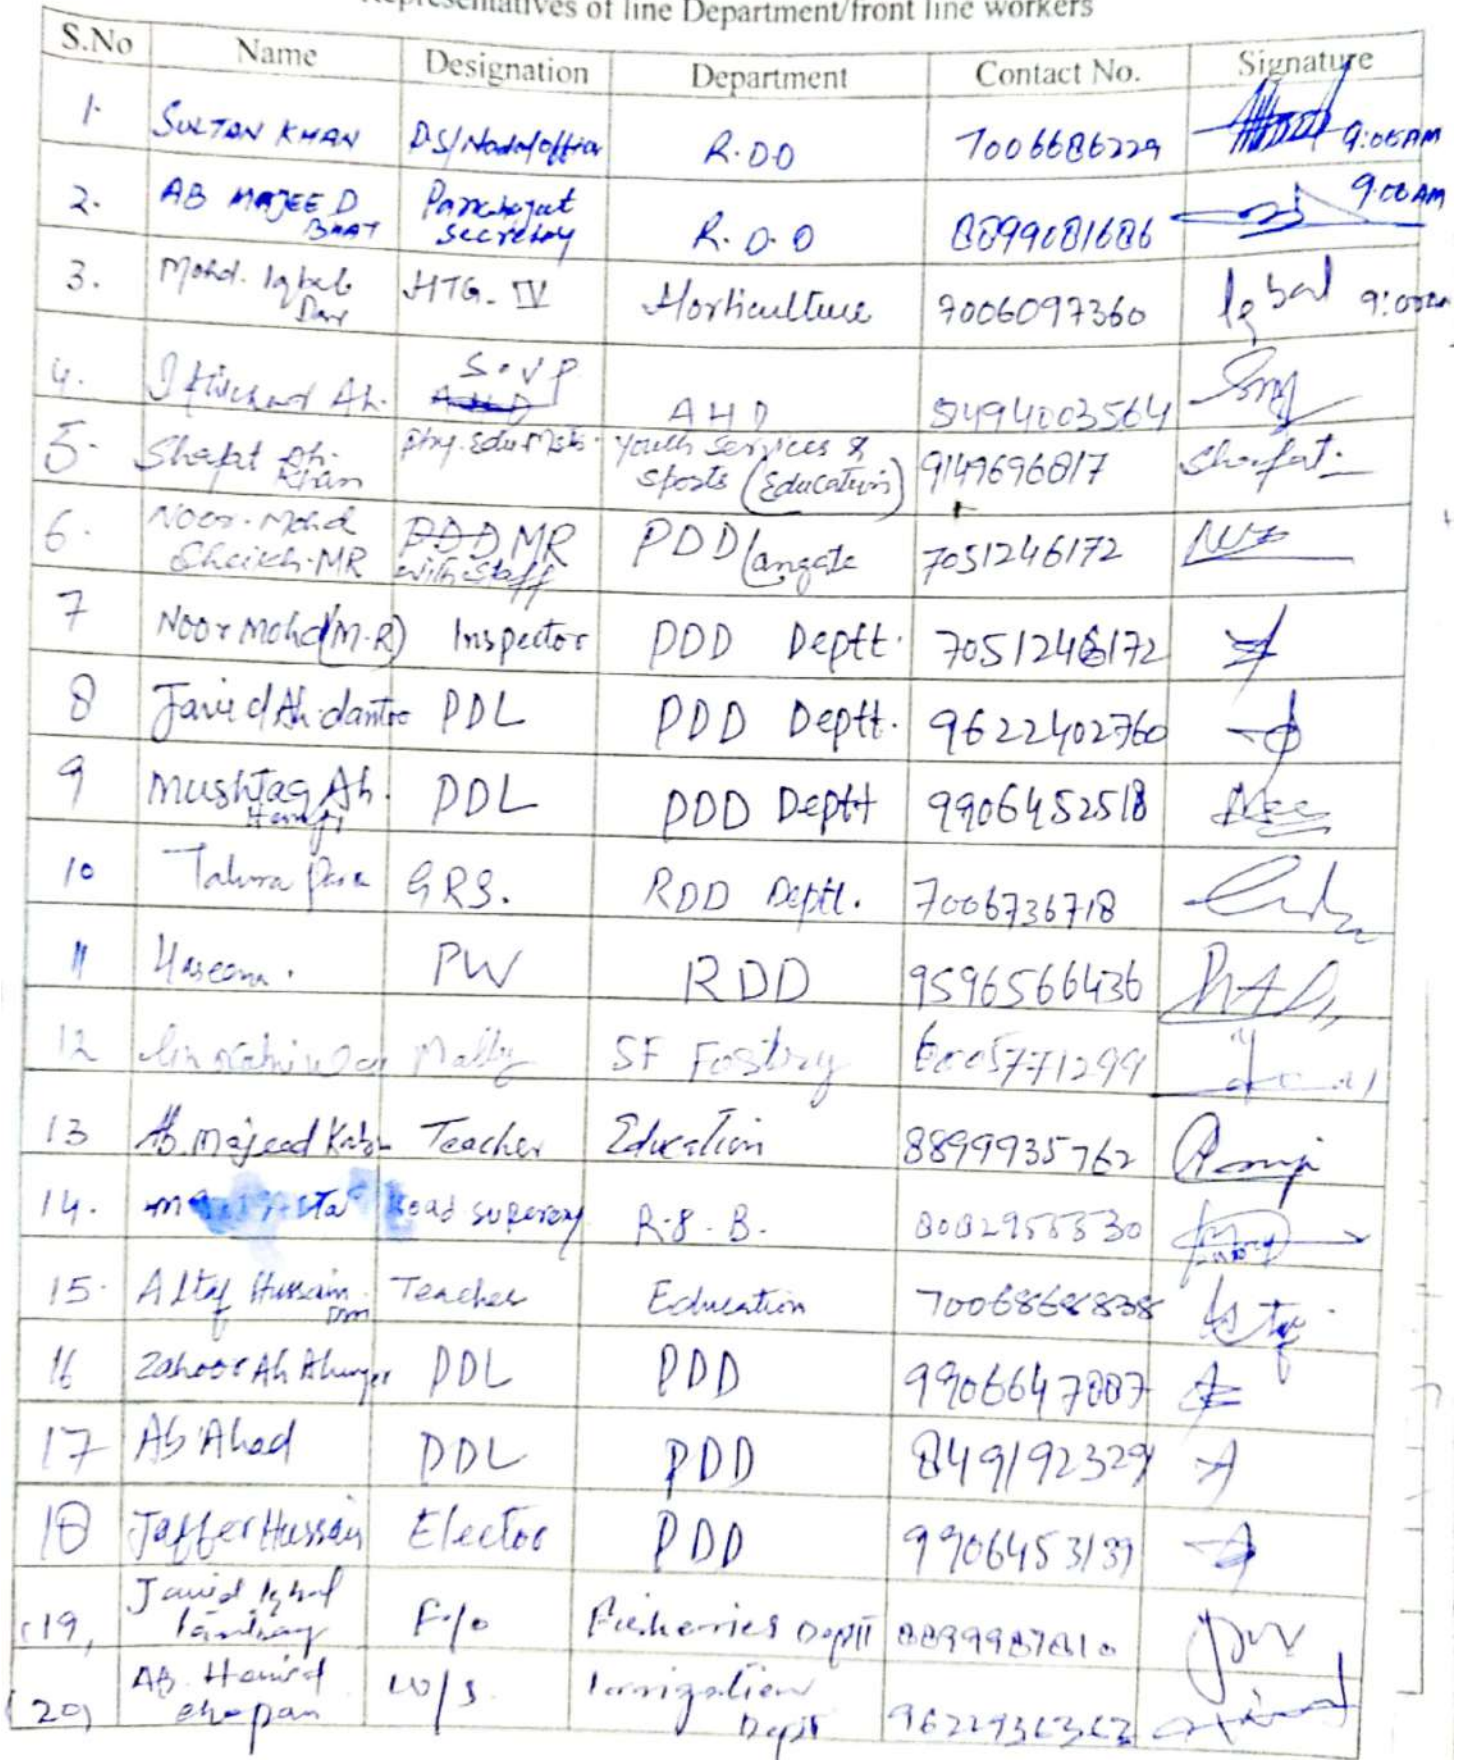 Representatives of line Department/front line workers
S.No Name Designation Department Contact No. Signature
1. SULTAN KHAN DS/Nodal officer R.D.D 7006686229 9:00AM
2. AB MAJEED BHAT Panchayat Secretary R.D.D 8899081686 9:00AM
3. Mohd. Iqbal Dar HTG-IV Horticulture 7006097360 Iqbal 9:00am
4. Iftikhar Ah. S.V.P AHD 8494003564
5. Shafat Ah. Khan Phy. Edu. Mstr. Youth Services & Sports (Education) 9149696817 Shafat.
6. Noor. Mohd Sheikh. MR PDD MR with staff PDD Langate 7051246172
7 Noor Mohd (M.R) Inspector PDD Deptt. 7051246172
8 Javid Ah. dantoo PDL PDD Deptt. 9622402760
9 Mushtaq Ah. PDL PDD Deptt 9906452518
10 GRS. RDD Deptt. 7006736718
11 Haseena. PW RDD 9596566436
12 Mally SF 6005771299
13 Ab. Majeed Teacher Education 8899935762
14. Road R&B.
15. Altaf Hussain Teacher Education 7006868838 Altaf
16 Zahoor Ah Ahanger PDL PDD 9906647887
17 Ab Ahad PDL PDD 849192329
18 Jaffer Hussain Elector PDD 9906453139
(19) Javid Iqbal F/o Fisheries Deptt 8899987810
(20) AB. Hamid chopan W/S. Irrigation Deptt